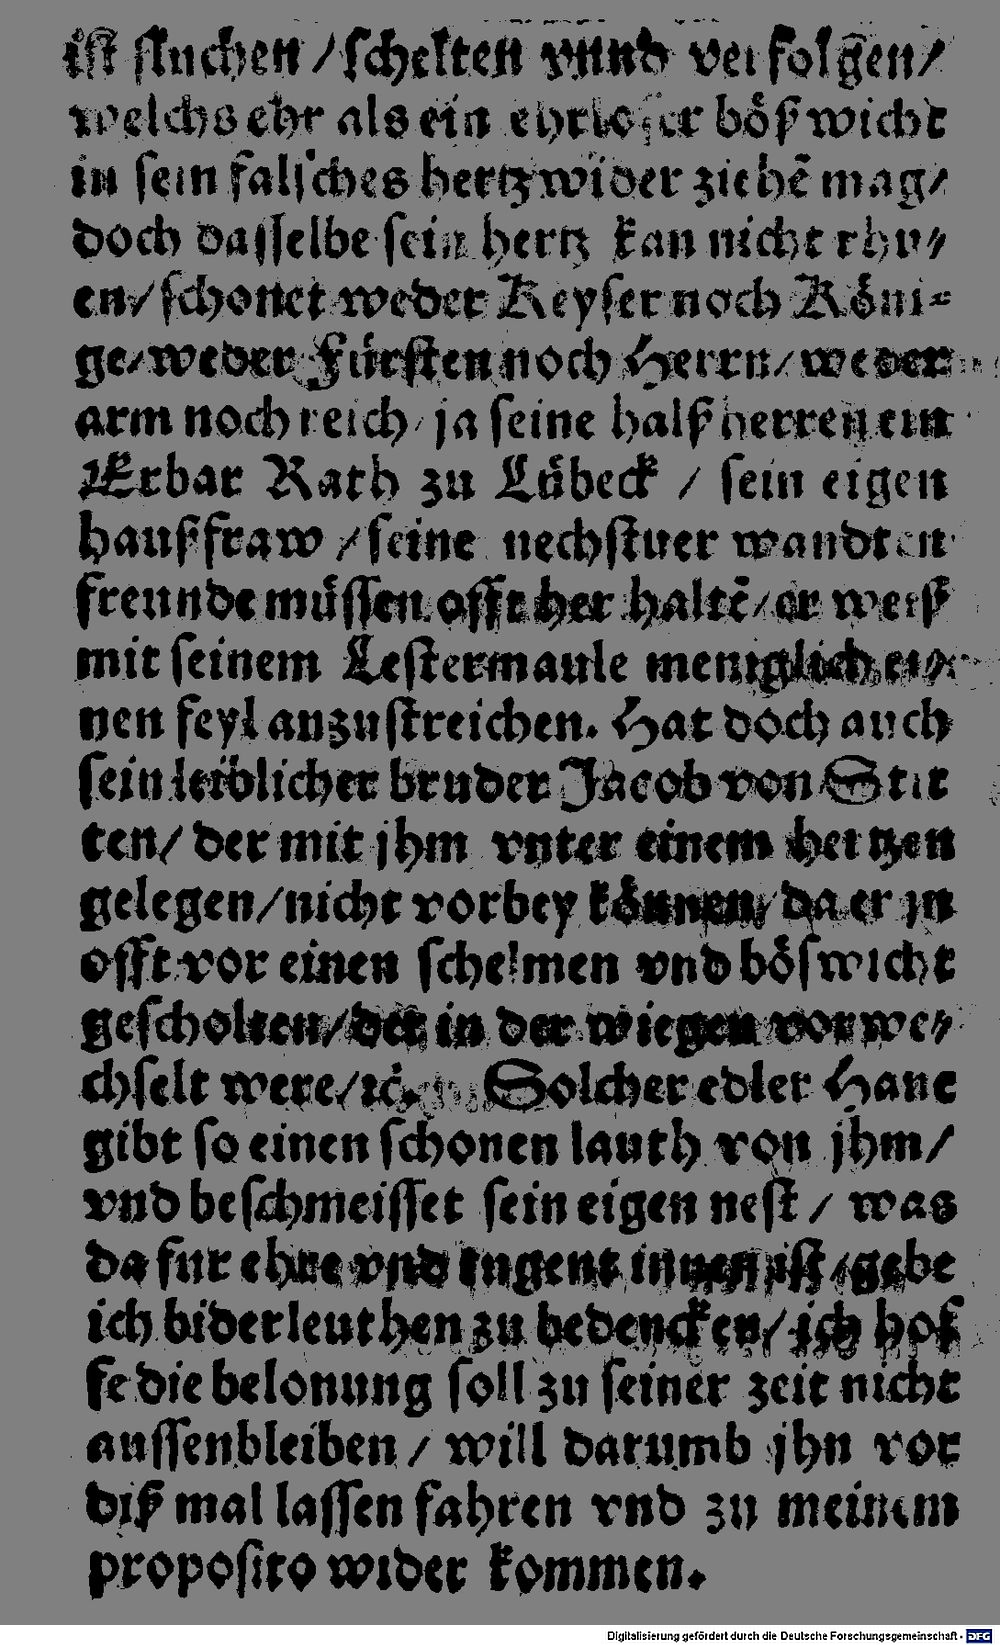 ist fluchen / schelten vnnd verfolgen /
welchs ehr als ein ehrloser bößwicht
in sein falsches hertz wider ziehē mag /
doch dasselbe sein hertz kan nicht rhu⸗
en / schonet weder Keyser noch Köni⸗
ge / weder Fürsten noch Herrn / weder
arm noch reich / ja seine halßherren ein
Erbar Rath zu Lübeck / sein eigen
haußfraw / seine nechstuerwandten
freunde müssen offt her haltē / er weiß
mit seinem Lestermaule meniglich ei⸗
nen feyl anzustreichen. Hat doch auch
sein leiblicher bruder Jacob von Stit
ten / der mit jhm vnter einem hertzen
gelegen / nicht vorbey können / da er jn
offt vor einen schelmen vnd böswicht
gescholten / der in der wiegen vorwe⸗
chselt were / ꝛc. Solcher edler Hane
gibt so einen schonen lauth von jhm /
vnd beschmeisset sein eigen nest / was
da fur ehre vnd tugent innen ist / gebe
ich biderleuthen zu bedencken / ich hof
fe die belonung soll zu seiner zeit nicht
aussenbleiben / will darumb jhn vor
diß mal lassen fahren vnd zu meinem
proposito wider kommen.
Digitalisierung gefördert durch die Deutsche Forschungsgemeinschaft - DFG